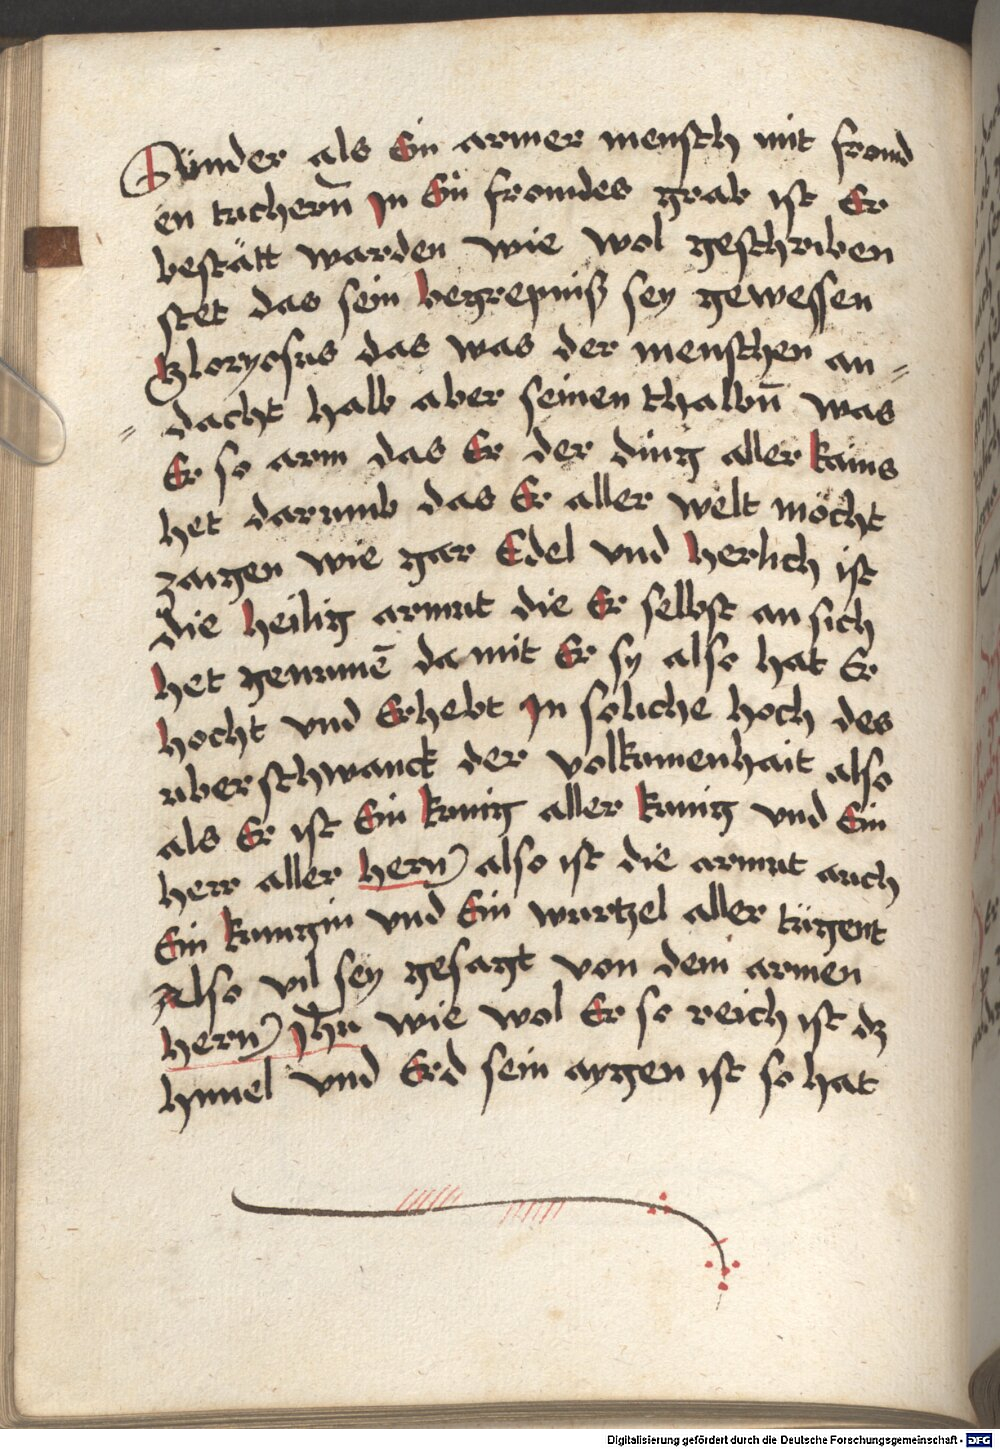 Sünder als Ein armer mensch mit fromd
en tuchern̄ In Ein fromdes grab ist Er
bestätt warden wie wol geschriben
stet das sein begrepniß sey gewessen
Gloryosus das was der menschen an=
=dacht halb aber seinen thalbn̄ was
Er so arm das Er der ding aller kains
het darumb das Er aller welt möcht
zaigen wie gar Edel vnd herlich ist
die heilig armut die Er selbst an sich
het genumē da mit Er sy also hat Er
hocht vnd Erhebt In soliche hoch des
uberschwanck der volkumenhait also
als Er ist Ein kunig aller kunig vnd Ein
herr aller hern) also ist die armut auch
Ein kunigin vnd Ein wurtzel aller tügent
Also vil sey gesagt von dem armen
hern) Jhu wie wol Er so reich ist dz
himel vnd Erd sein aygen ist so hat
Digitalisierung gefördert durch die Deutsche Forschungsgemeinschaft - DFG